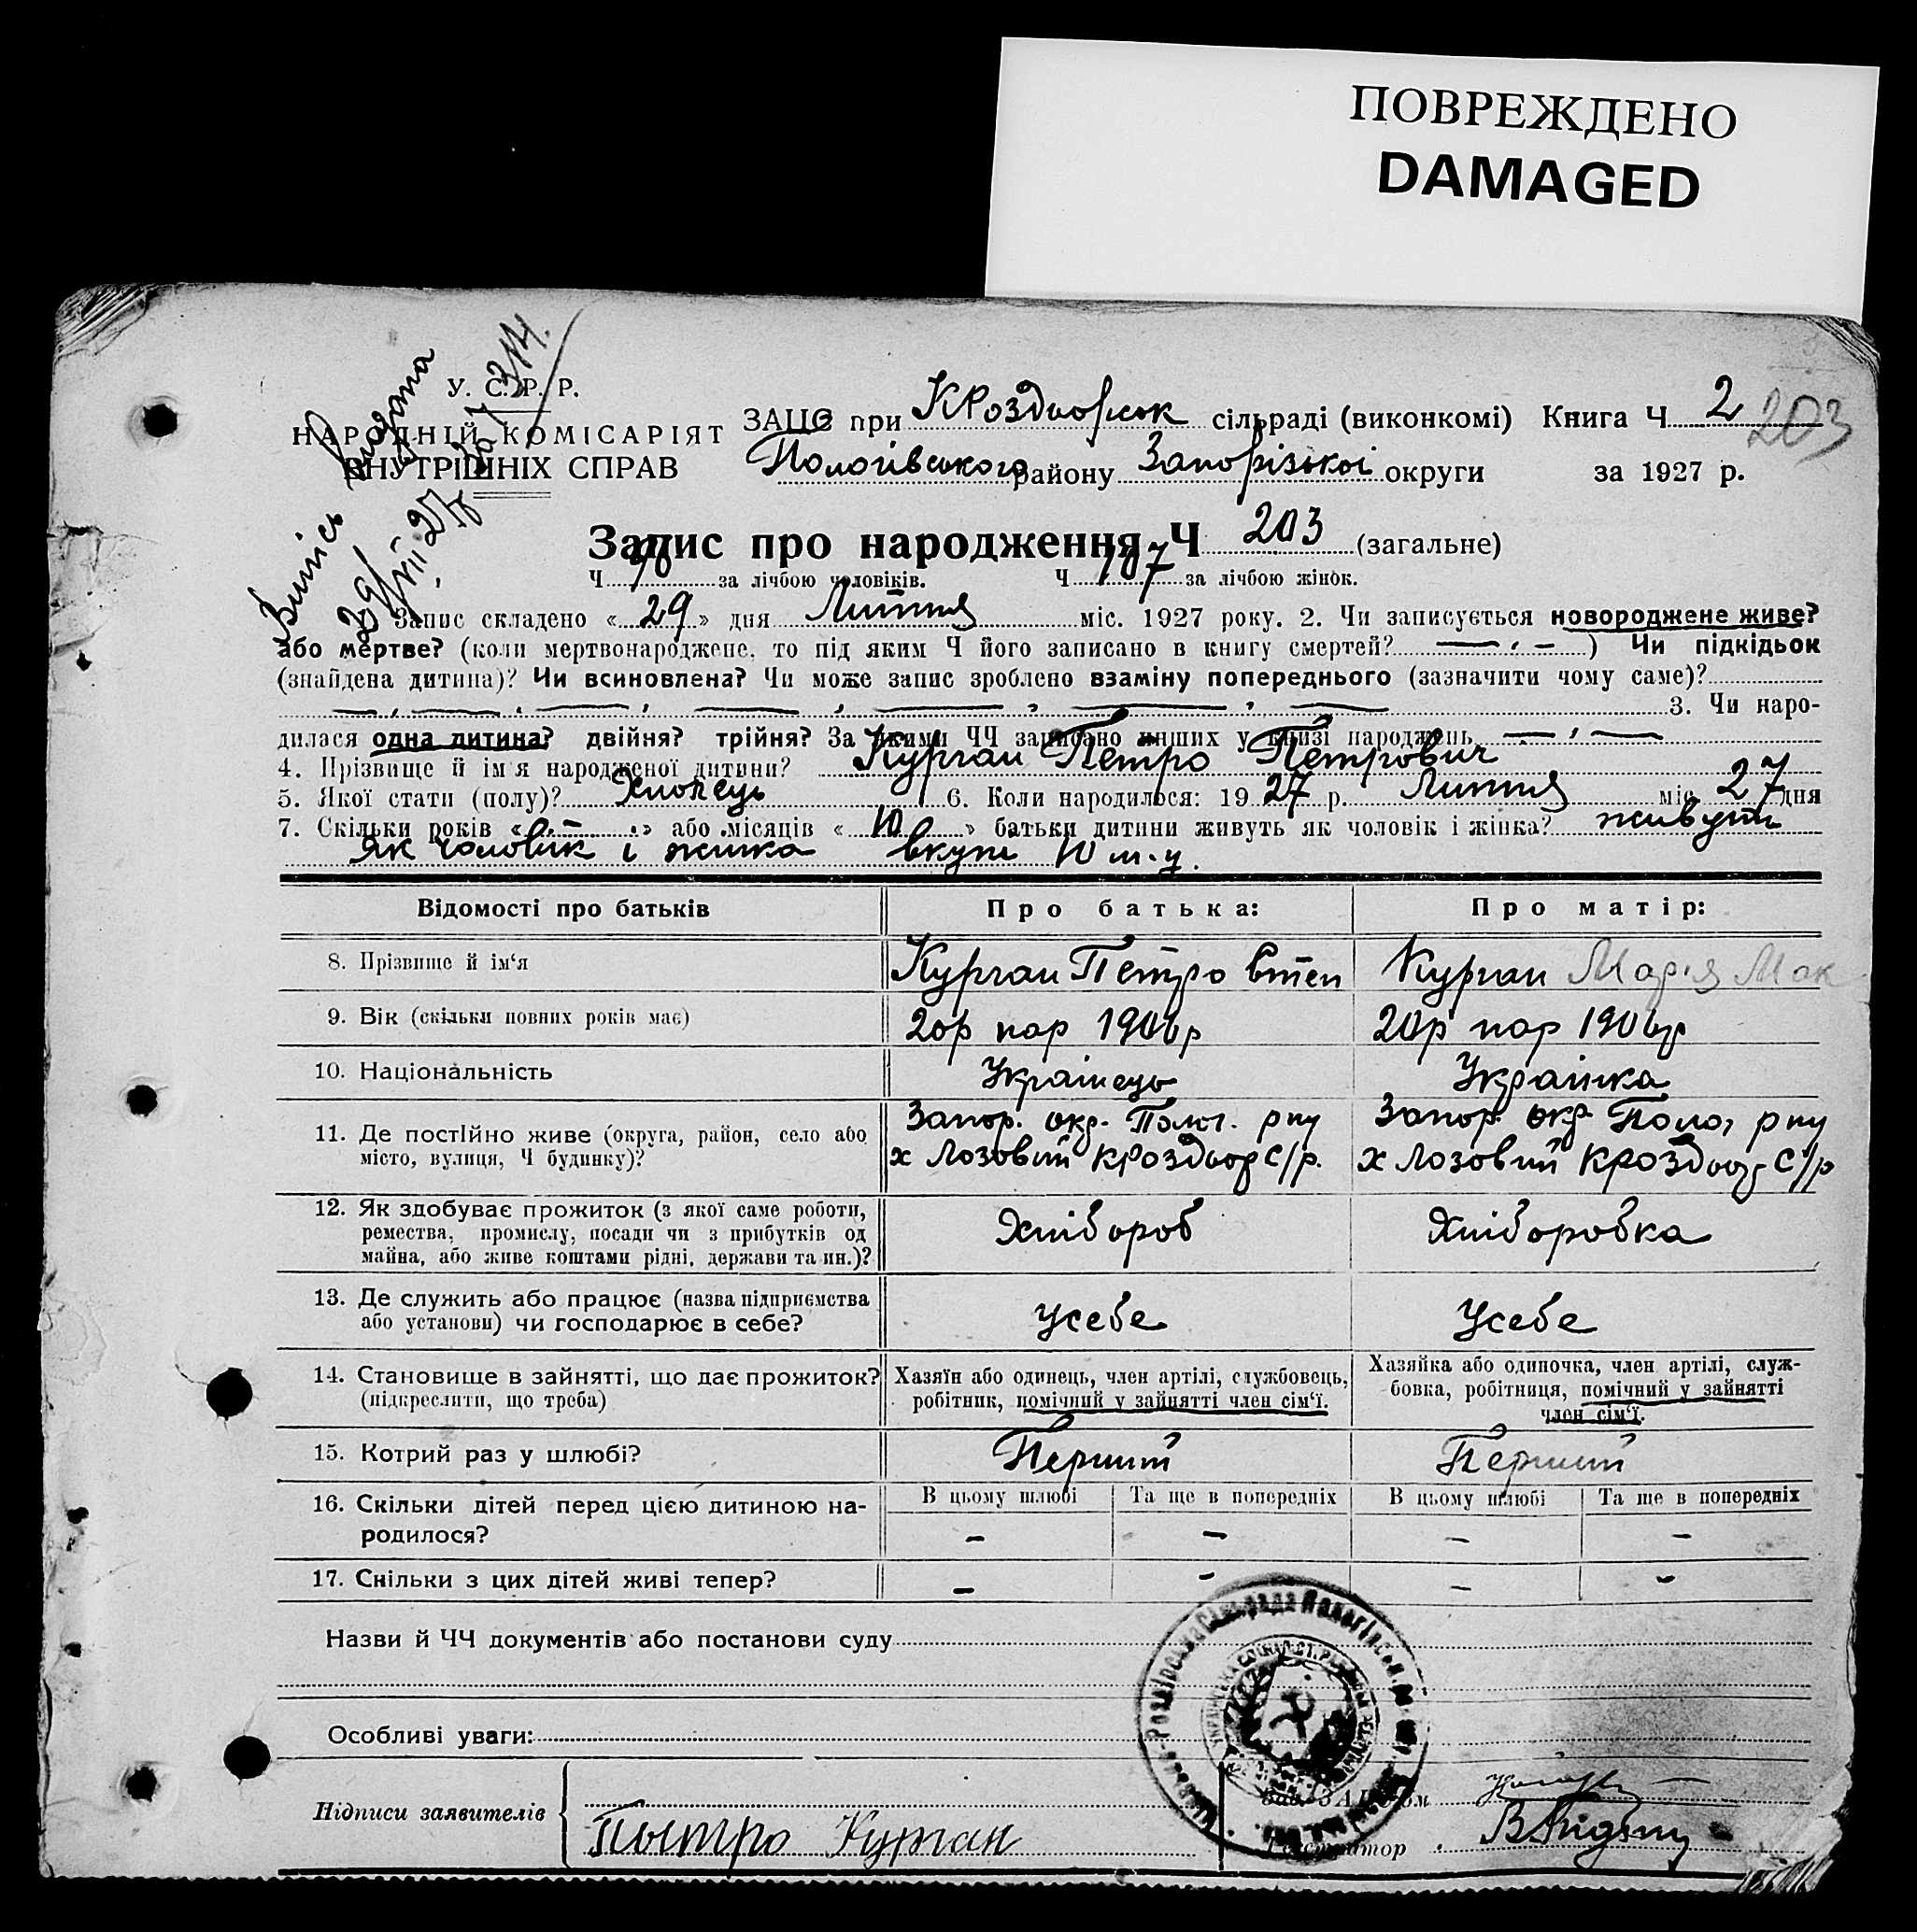 ПОВРЕЖДЕНО
DAMAGED
У. С. Р. Р.
НАРОДНІЙ КОМІСАРІЯТ
ВНУТРІШНІХ СПРАВ
Випись видана
29/VII 27 за 314.
ЗАЦС при КРоздорськ сільраді (виконкомі) Книга Ч 2
203
Пологівського району Запорізькоі округи за 1927 р.
Запис про народження Ч 203 (загальне)
Ч 96 за лічбою чоловіків. Ч 107 за лічбою жінок.
Запис складено «29» дня Липня міс. 1927 року. 2. Чи записується новороджене живе?
або мертве? (коли мертвонароджене, то під яким Ч його записано в книгу смертей? — . – ) Чи підкідьок
(знайдена дитина)? Чи всиновлена? Чи може запис зроблено взаміну попереднього (зазначити чому саме)?
— , — . — , — , — , — , — 3. Чи наро-
дилася одна дитина? двійня? трійня? За якими ЧЧ записано инших у книзі народжень — , —
4. Прізвище й ім'я народженої дитини? Курган Петро Петрович
5. Якої стати (полу)? Хлопець 6. Коли народилося: 1927 р. Липня міс 27 дня
7. Скільки років « – » або місяців « 10 » батьки дитини живуть як чоловік і жінка? живуть
як чоловік і жинка вкупі 10 м-ц.
Відомості про батьків Про батька: Про матір:
8. Прізвище й ім'я Курган Петро Степ Курган Марія Мак
9. Вік (скільки повних років має) 20р нар 1906р 20р нар 1906р
10. Національність Українець Українка
11. Де постійно живе (округа, район, село або місто, вулиця, Ч будинку)? Запор. окр. Полог. рну х Лозовий КРоздор С/р. Запор. окр Полог рну х Лозовий КРоздор С/р
12. Як здобуває прожиток (з якої саме роботи, ремества, промислу, посади чи з прибутків од майна, або живе коштами рідні, держави та ин.)? Хлібороб Хліборобка
13. Де служить або працює (назва підприємства або установи) чи господарює в себе? Усебе Усебе
14. Становище в зайнятті, що дає прожиток? (підкреслити, що треба) Хазяїн або одинець, член артілі, службовець, робітник, помічний у зайнятті член сім'ї. Хазяйка або одиночка, член артілі, служ-бовка, робітниця, помічний у зайнятті член сім'ї.
15. Котрий раз у шлюбі? Перший Перший
16. Скільки дітей перед цією дитиною на-родилося? В цьому шлюбі – Та ще в попередніх – В цьому шлюбі – Та ще в попередніх –
17. Скільки з цих дітей живі тепер? – – – –
Назви й ЧЧ документів або постанови суду
Особливі уваги:
Підписи заявителів Пьотро Курган
Зав. ЗАЦС'ом
Реєстратор